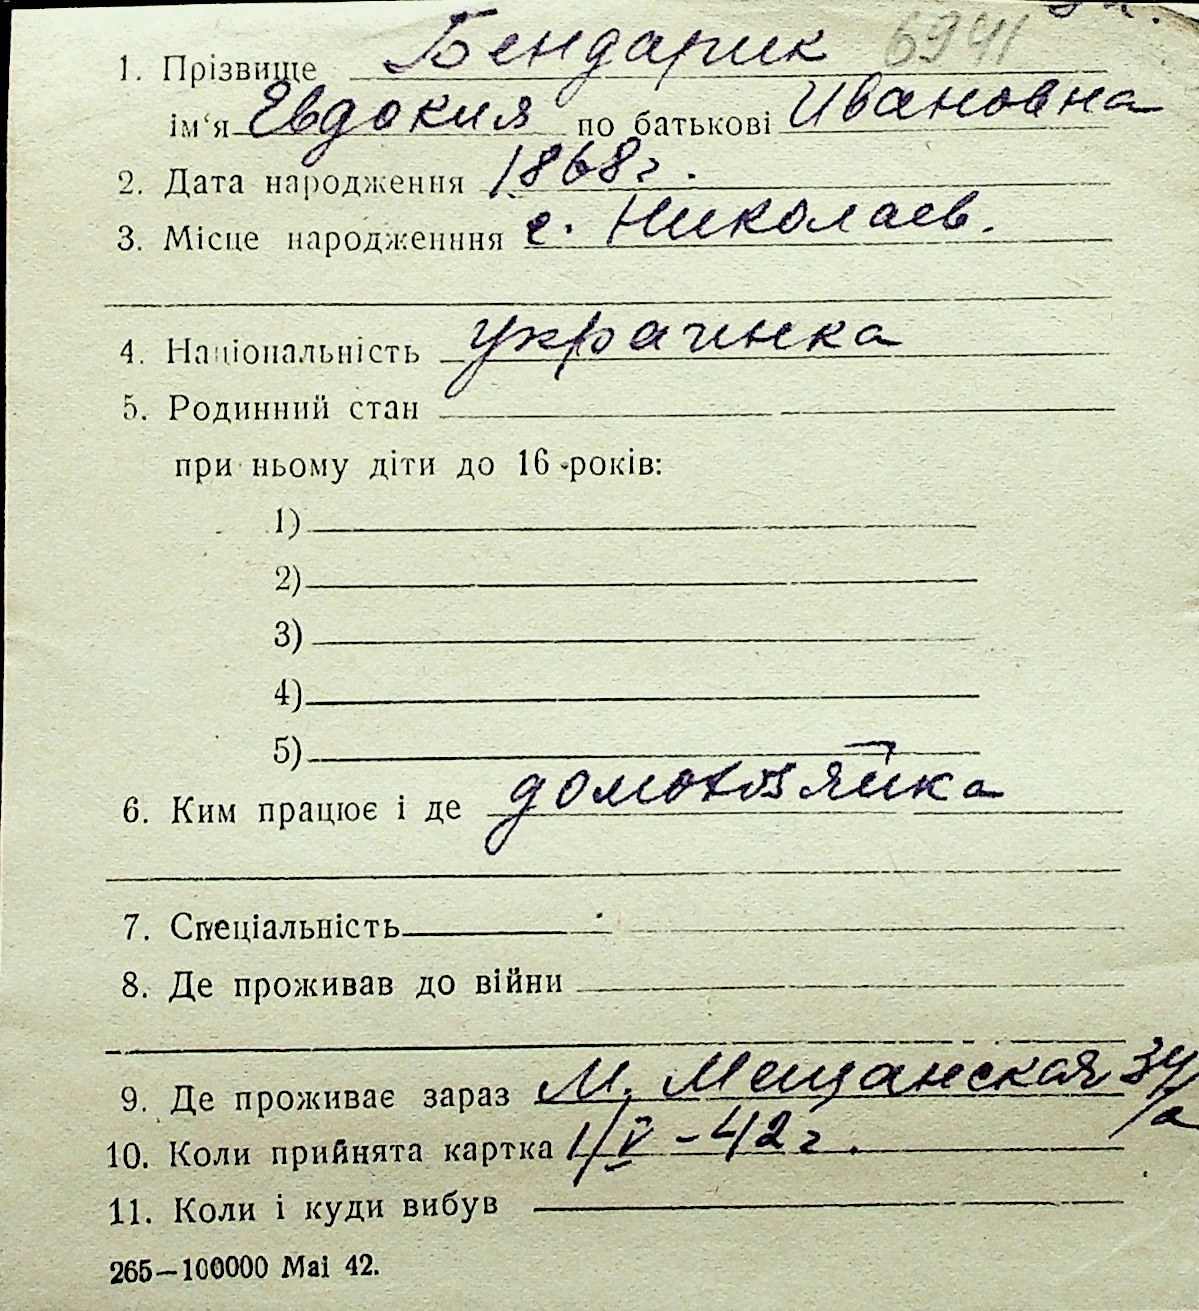 1. Прізвище Бендарик 6941
ім'я Евдокия по батькові Ивановна
2. Дата народження 1868 г.
3. Місце народженння с. Николаев.
4. Національність украинка
5. Родинний стан
при ньому діти до 16 років:
1)
2)
3)
4)
5)
6. Ким працює і де домохозяйка
7. Спеціальність
8. Де проживав до війни
9. Де проживає зараз М. Мещанская 34/а
10. Коли прийнята картка 1/V – 42 г.
11. Коли і куди вибув
265—100000 Маі 42.